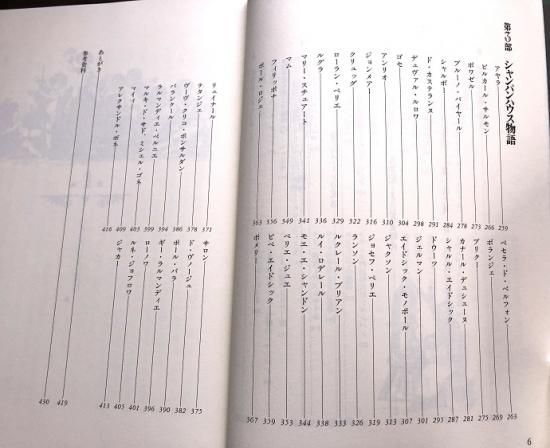 第3部 シャンパンハウス物語
アヤラ 259
ベセラ・ド・ベルフォン 263
ビルカール・サルモン 266
ボランジェ 269
ボワゼル 273
ブリクー 275
ブルーノ・パイヤール 278
カナール・デュシェーヌ 281
シャルボー 284
シャルル・エイドシック 287
ド・カステランヌ 291
ドゥーツ 295
デュヴァル・ルロワ 298
ジェルマン 301
ゴセ 304
エイドシック・モノポール 307
アンリオ 310
ジャクソン 313
ジョンメアー 316
ジョセフ・ペリエ 319
クリュッグ 322
ランソン 326
ローラン・ペリエ 329
ルクレール・ブリアン 333
ルグラ 336
ルイ・ロデレール 338
マリー・スチュアート 341
モエ・エ・シャンドン 344
マム 349
ペリエ・ジュエ 353
フィリッポナ 356
ピペ・エイドシック 359
ポール・ロジェ 363
ポメリー 367
6
リュイナール 371
サロン 375
テタンジェ 378
ド・ヴノージュ 382
ヴーヴ・クリコ・ポンサルダン 386
ポール・バラ 390
バランクール 394
ギー・ラルマンディエ 396
ラルマンディエ・ベルニエ 399
ローノワ 401
マルキ・ド・サド、ミシェル・ゴネ 403
ルネ・ジョフロワ 405
マイィ 409
ジャカー 413
アレクサンドル・ボネ 416
あとがき 419
参考資料 430